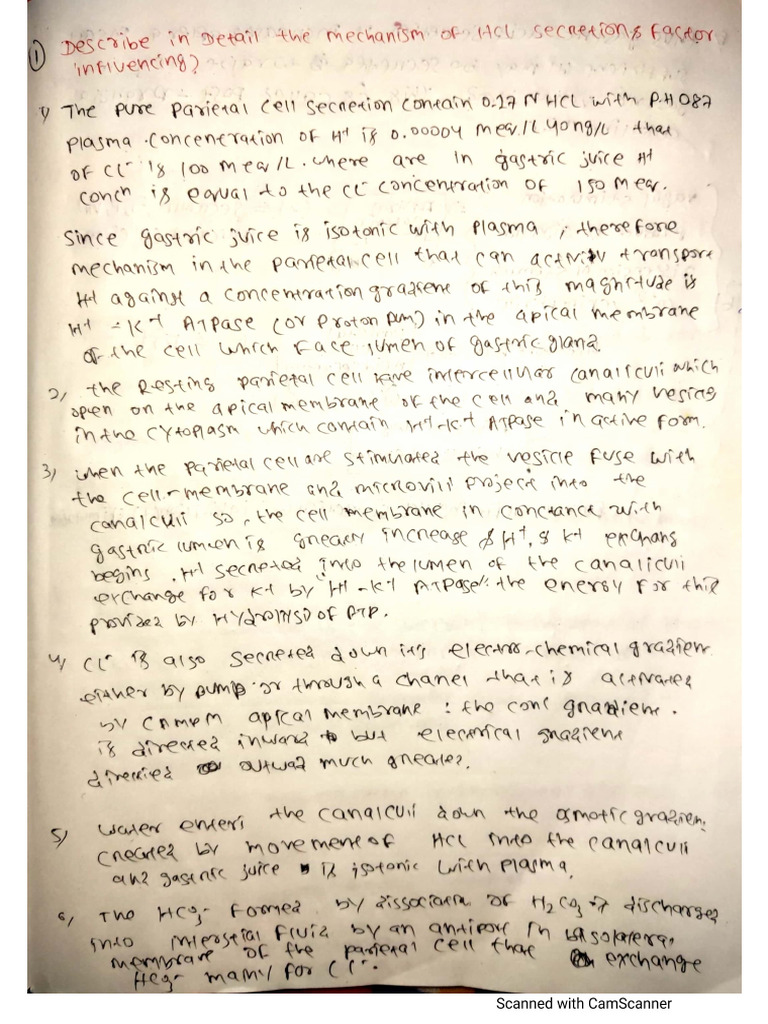 ① Describe in Detail the mechanism of HCL secretions & factor
influencing?
1) The pure parietal cell secretion contain 0.17 N HCL with P.H 087
plasma concentration of H+ is 0.00004 meq/L 40ng/L that
of Cl- is 100 meq/L. where are in gastric juice H+
conch is equal to the Cl- concentration of 150 meq.
Since gastric juice is isotonic with plasma, therefore
mechanism in the parietal cell that can activly transport
H+ against a concentration gradient of this magnitude is
H+ - K+ ATPase (or proton pum) in the apical membrane
of the cell which face lumen of gastric gland.
2) the Resting parietal cell have intercellular canaliculi which
open on the apical membrane of the cell and many vesicles
in the cytoplasm which contain H+-K+ ATPase in active form.
3) when the parietal cell are stimulated the vesicle fuse with
the cell-membrane and microvilli project into the
canalculi so, the cell membrane in conctance with
gastric lumen is greatly increase & H+, & K+ exchang
begins. H+ secreted into the lumen of the canaliculi
exchange for K+ by "H+ - K+ ATPase". the energy for this
provided by Hydrolysid of ATP.
4) Cl- is also secreted down its electro-chemical gradient
either by pump or through a chanel that is activated
by CAMP apical membrane : the conc gradient.
is directed inward but electrical gradient
directed outwad much greater.
5) water enters the canalculi down the osmotic gradient
created by movement of HCl into the canalculi
and gastric juice is isotonic with plasma.
6) The HCO3- formed by dissociatn of H2CO3 is discharged
into interstial fluid by an antiport in basolateral
membrane of the parietal cell that exchange
HCO3- mainly for Cl-.
Scanned with CamScanner